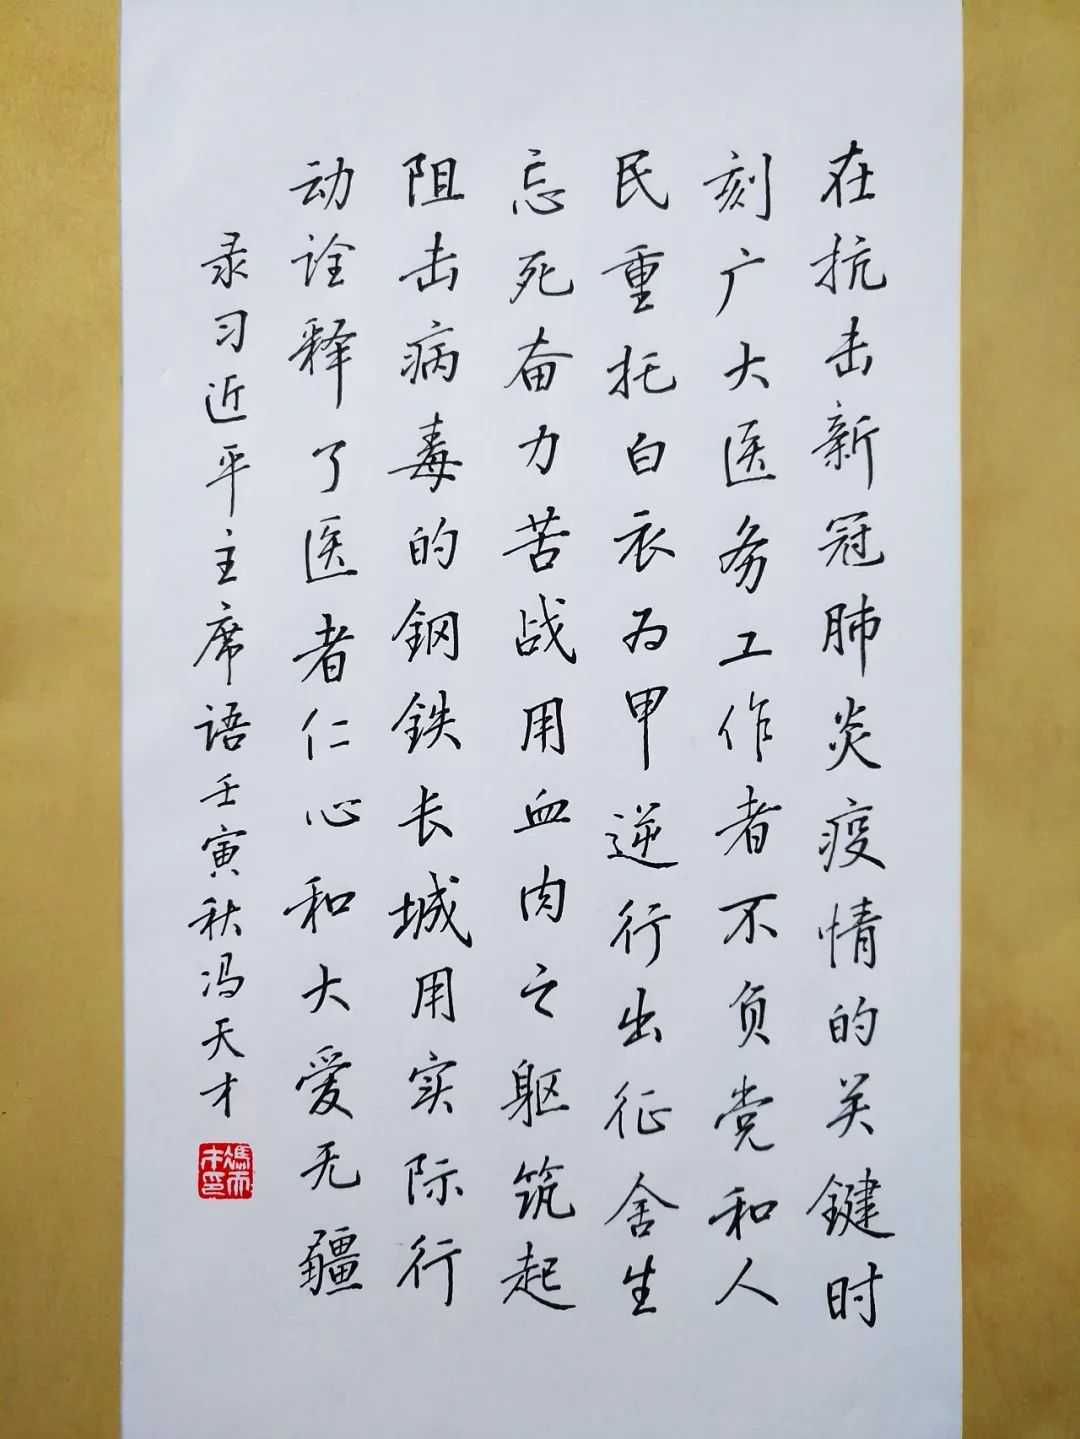 在抗击新冠肺炎疫情的关键时
刻广大医务工作者不负党和人
民重托白衣为甲逆行出征舍生
忘死奋力苦战用血肉之躯筑起
阻击病毒的鋼鉄长城用实际行
动诠释了医者仁心和大爱无疆
录习近平主席语壬寅秋冯天才
馮天才印